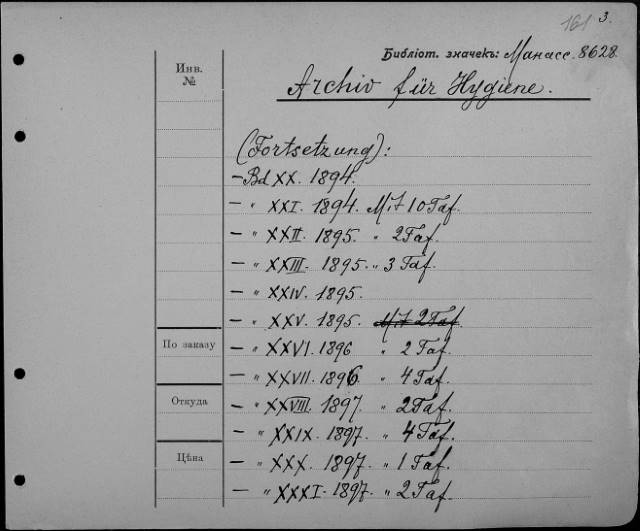 161 3.
Библіот. значекъ: Манасс. 8628.
Инв.
№
Archiv für Hygiene.
(Fortsetzung):
— Bd XX. 1894.
— " XXI. 1894. Mit 10 Taf.
— " XXII. 1895. " 2 Taf.
— " XXIII. 1895. " 3 Taf.
— " XXIV. 1895.
— " XXV. 1895. Mit 2 Taf
— " XXVI. 1896 " 2 Taf.
По заказу
— " XXVII. 1896. " 4 Taf.
— " XXVIII. 1897. " 2 Taf.
Откуда
— " XXIX. 1897. " 4 Taf.
— " XXX. 1897. " 1 Taf.
Цѣна
— " XXXI. 1897. " 2 Taf.